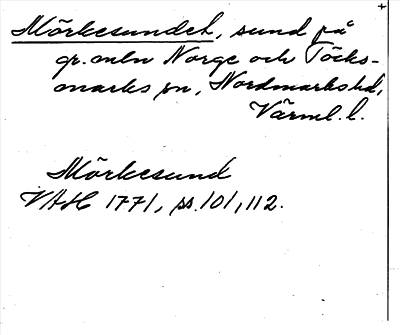 Mörkesundet, sund på
gr. mln Norge och Töcks-
marks sn, Nordmarks hd,
Värml. l.
Mörkesund
VAH 1771, ss. 101, 112.